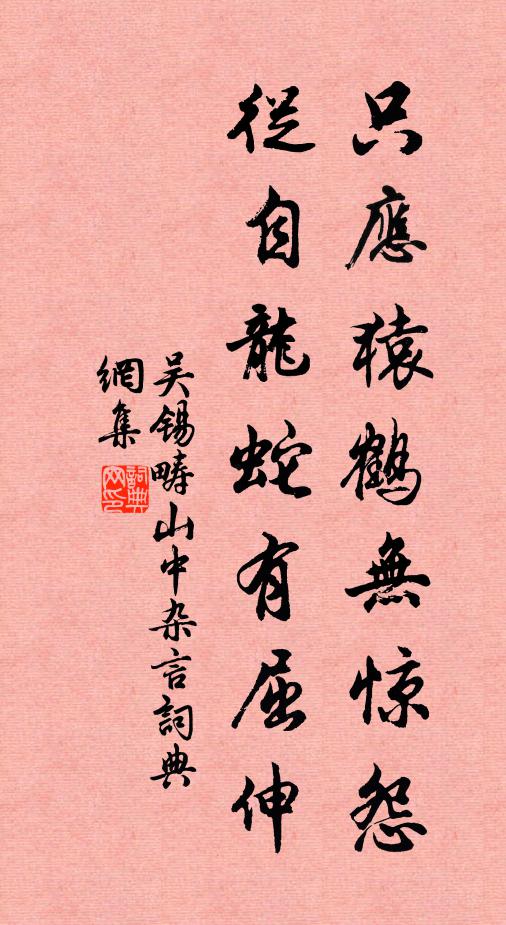 只應猿鶴無惊怨
從自龍蛇有屈伸
吳锡疇山中杂言詞典
網集
詞典
网印